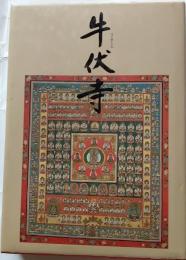 牛伏寺